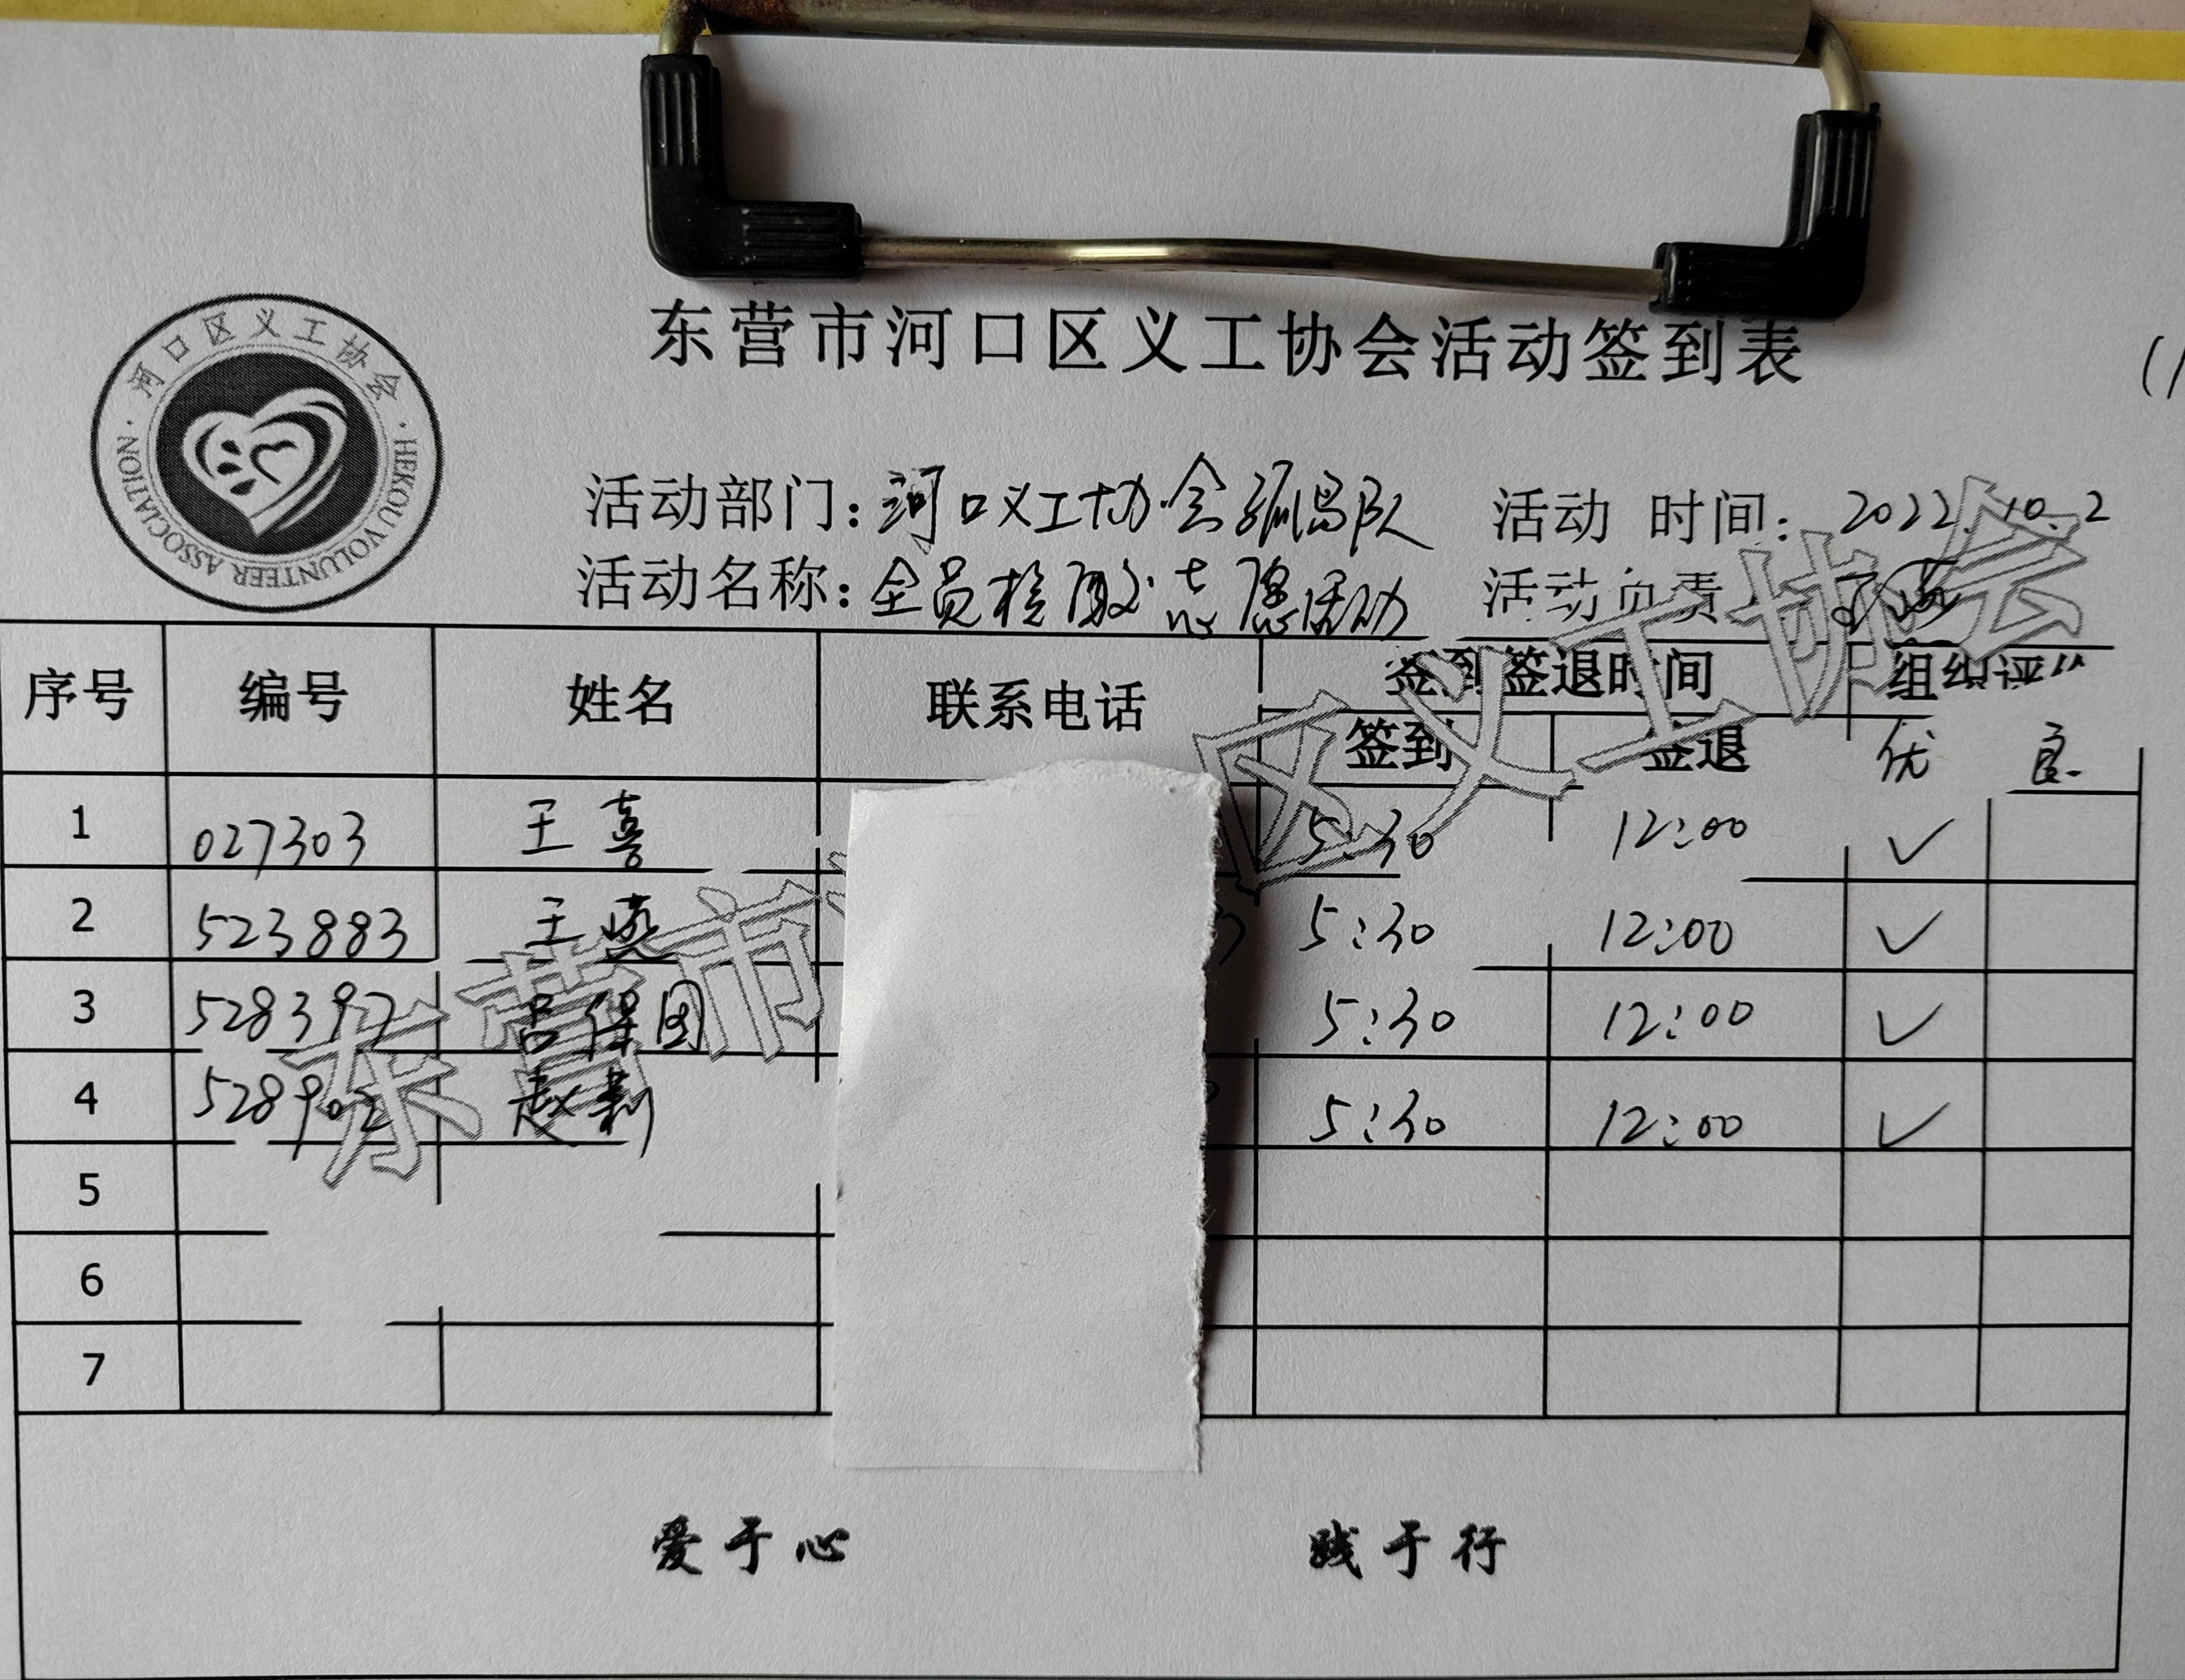 东营市河口区义工协会活动签到表
河口区义工协会
HEKOU VOLUNTEER ASSOCIATION
活动部门：河口义工协会孤岛队 活动 时间：2022.10.2
活动名称：全员核酸志愿活动 活动负责
序号 编号 姓名 联系电话 签到签退时间 组织评
签到 签退 优 良
1 027303 王喜 5:30 12:00 ✓
2 523883 王燕 5:30 12:00 ✓
3 528397 吕保国 5:30 12:00 ✓
4 528902 赵莉 5:30 12:00 ✓
5
6
7
爱于心 践于行
东营市 区义工协会